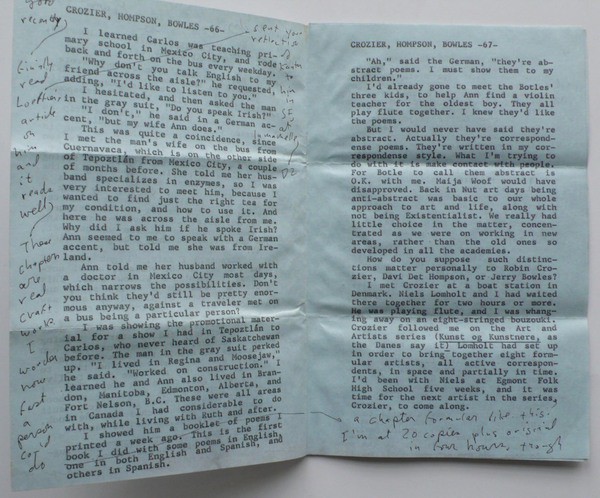 CROZIER, HOMPSON, BOWLES -66-
I learned Carlos was teaching pri-
mary school in Mexico City, and rode
back and forth on the bus every weekday.
"Why don't you talk English to my
friend across the aisle?" he requested,
adding, "I'd like to listen to you."
I hesitated, and then asked the man
in the gray suit, "Do you speak Irish?"
"I don't," he said in a German ac-
cent, "but my wife Ann does."
This was quite a coincidence, since
I met the man's wife on the bus from
Cuernavaca, which is on the other side
of Tepoztlán from Mexico City, a couple
of months before. She told me her hus-
band specializes in enzymes, so I was
very interested to meet him, because I
wanted to find just the right tea for
my condition, and how to use it. And
here he was across the aisle from me.
Why did I ask him if he spoke Irish?
Ann seemed to me to speak with a German
accent, but told me she was from Ire-
land.
Ann told me her husband worked with
a doctor in Mexico City most days,
which narrows the possibilities. Don't
you think they'd still be pretty enor-
mous anyway, against a traveler met on
a bus being a particular person?
I was showing the promotional mater-
ial for a show I had in Tepoztlán to
Carlos, who never heard of Saskatchewan
before. The man in the gray suit perked
up. "I lived in Regina and Moosejaw,"
he said. "Worked on construction." I
learned he and Ann also lived in Bran-
don, Manitoba, Edmonton, Alberta, and
Fort Nelson, B.C. These were all areas
in Canada I had considerable to do
with, while living with Ruth and after.
I showed him a booklet of poems I
printed a week ago. This is the first
book I did with some poems in English,
one in both English and Spanish, and
others in Spanish.
recovery
finish
read
article
on
him
and
it
reads
well,
These
chapters
are
real
craft
work
I
wonder
how
fast
a
person
could
do
sent your
in
CROZIER, HOMPSON, BOWLES -67-
"Ah," said the German, "they're ab-
stract poems. I must show them to my
children."
I'd already gone to meet the Botles'
three kids, to help Ann find a violin
teacher for the oldest boy. They all
play flute together. I knew they'd like
the poems.
But I would never have said they're
abstract. Actually they're correspond-
ense poems. They're written in my cor-
respondense style. What I'm trying to
do with it is make contact with people.
For Botle to call them abstract is
O.K. with me. Maija Woof would have
disapproved. Back in Nut art days being
anti-abstract was basic to our whole
approach to art and life, along with
not being Existentialist. We really had
little choice in the matter, concen-
trated as we were on working in new
areas, rather than the old ones so
developed in all the academies.
How do you suppose such distinc-
tions matter personally to Robin Cro-
zier, Davi Det Hompson, or Jerry Bowles?
I met Crozier at a boat station in
Denmark. Niels Lomholt and I had waited
there together for two hours or more.
He was playing flute, and I was whang-
ing away on an eight-stringed bouzouki.
Crozier followed me on the Art and
Artists series (Kunst og Kunstnere, as
the Danes say it) Lomholt had set up
in order to bring together eight formu-
lar artists, all active correspond-
ents, in space and partially in time.
I'd been with Niels at Egmont Folk
High School five weeks, and it was
time for the next artist in the series,
Crozier, to come along.
a chapter formular like this.
I'm at 20 copies plus original
in four hours,